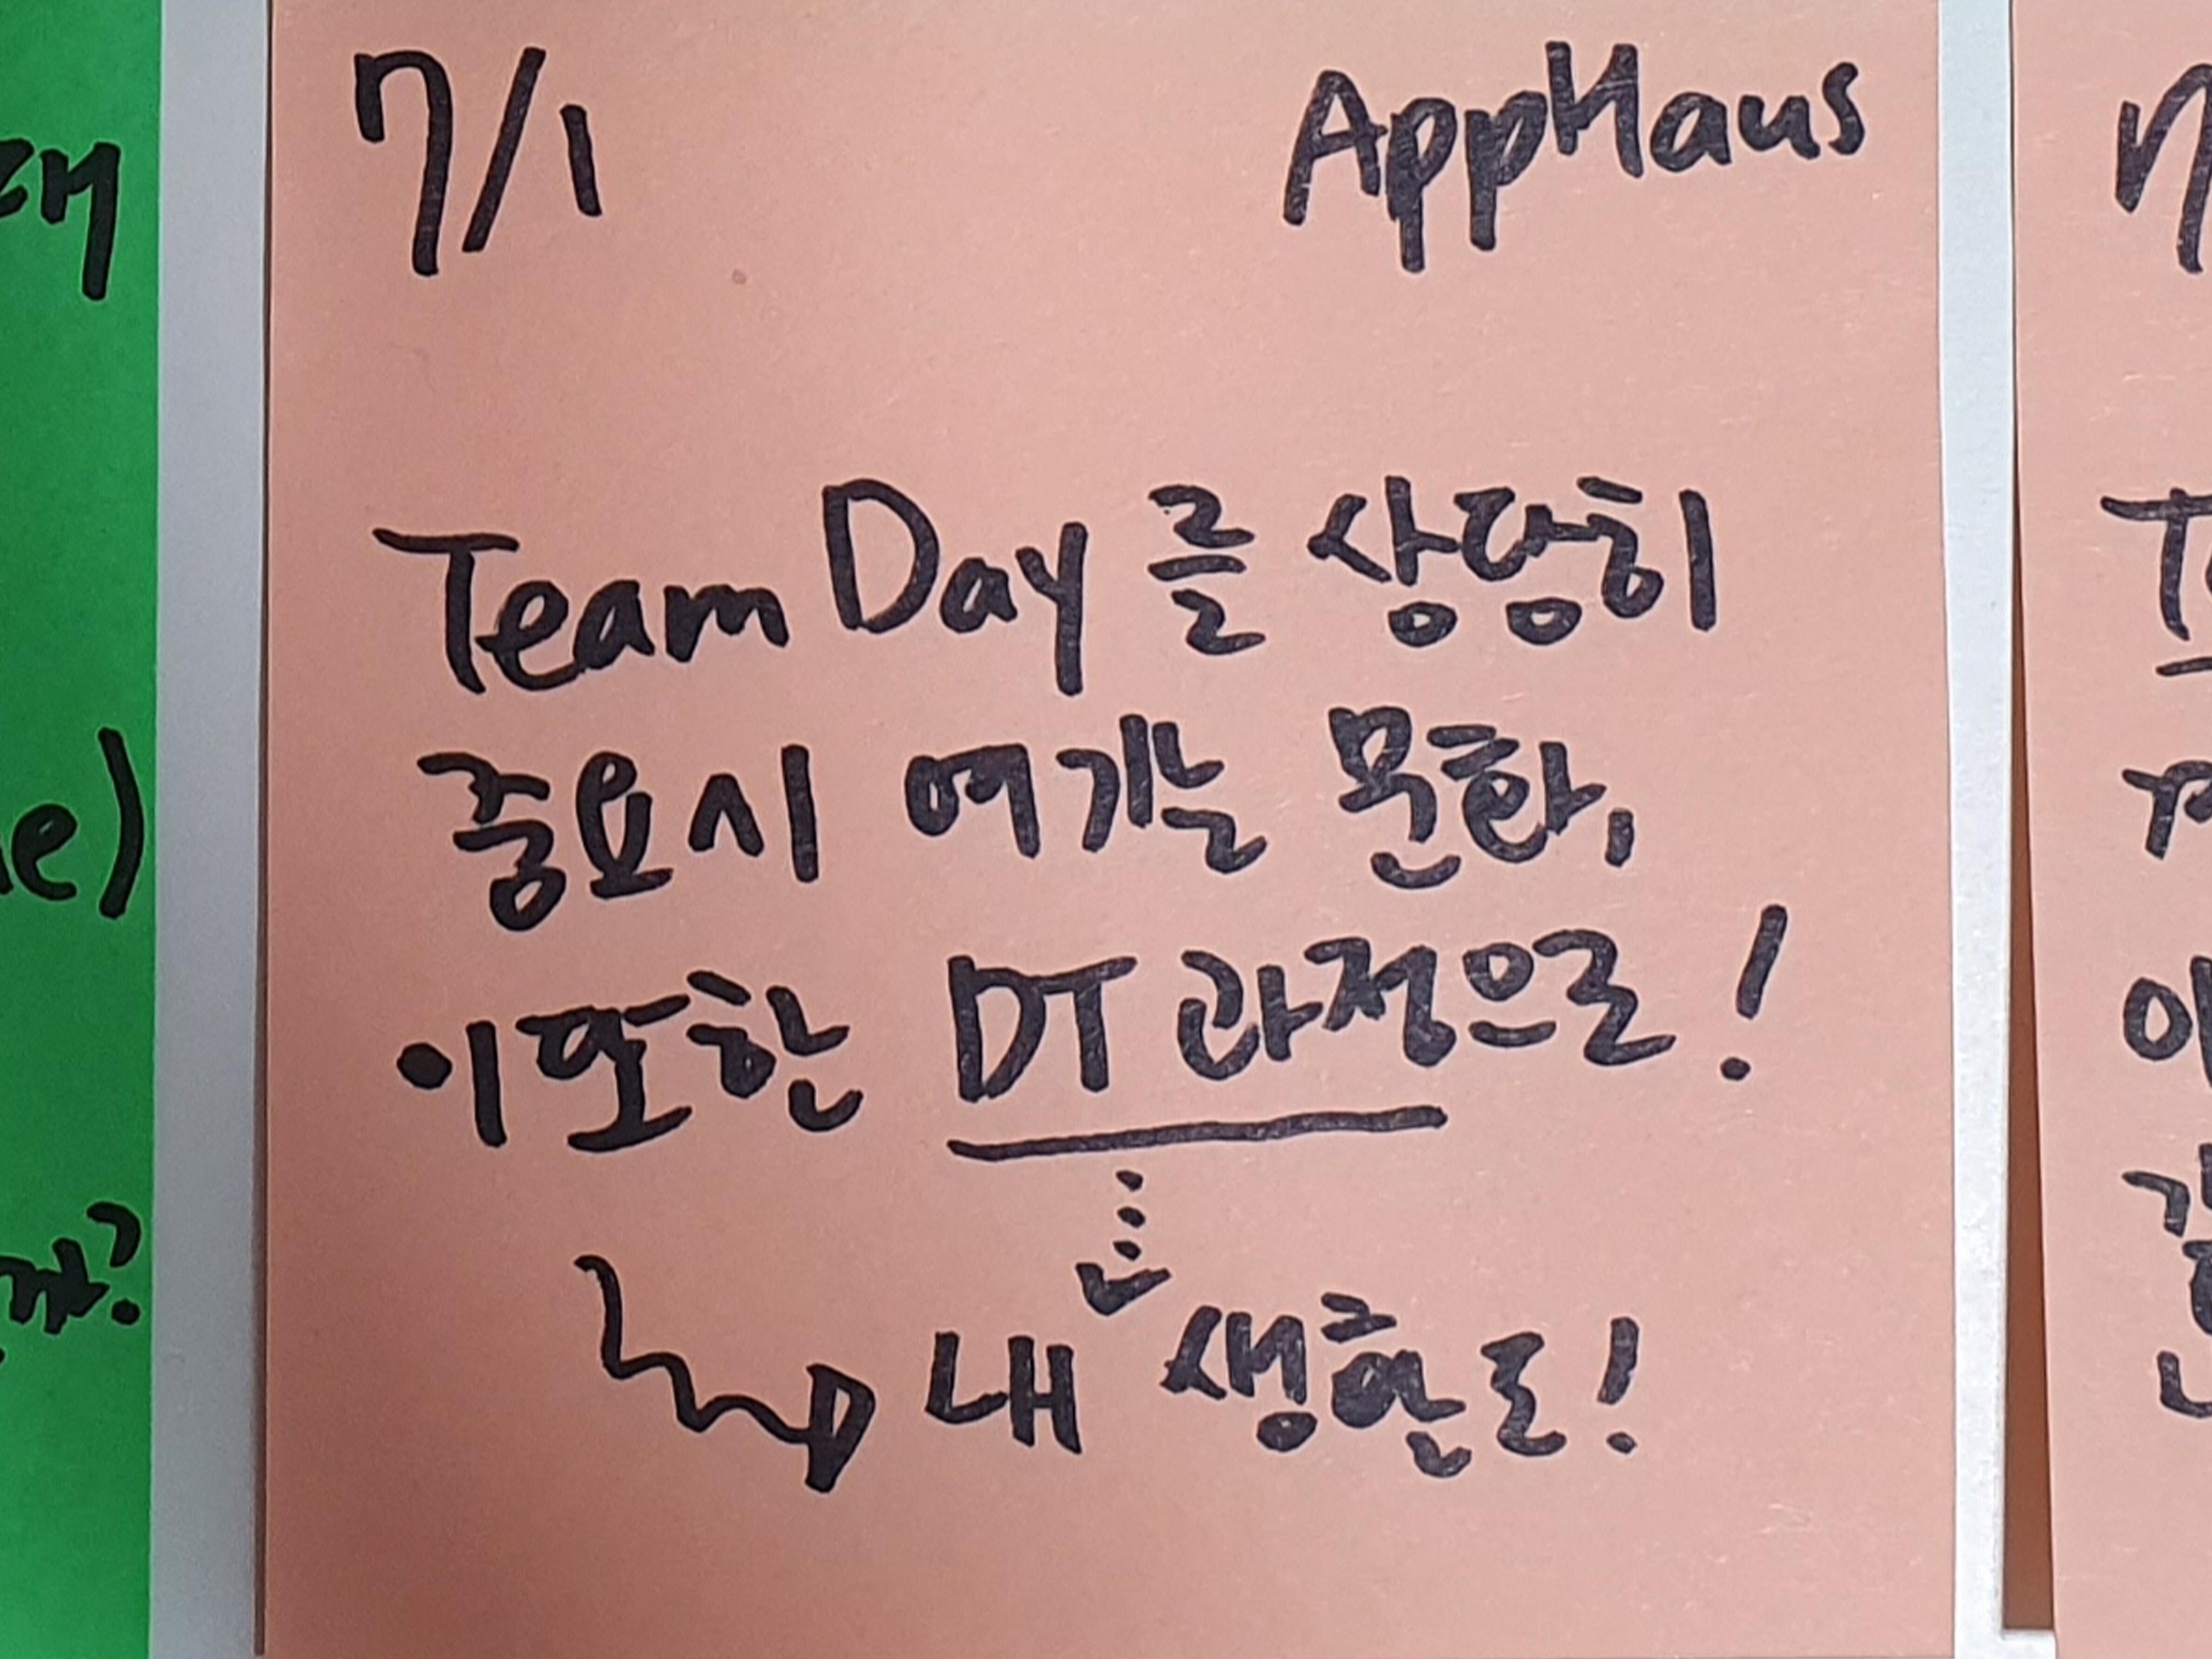 7/1 AppHaus
Team Day를 상당히
중요시 여기는 문화,
이 또한 DT 과정으로!
내 생활로!
e)
까?